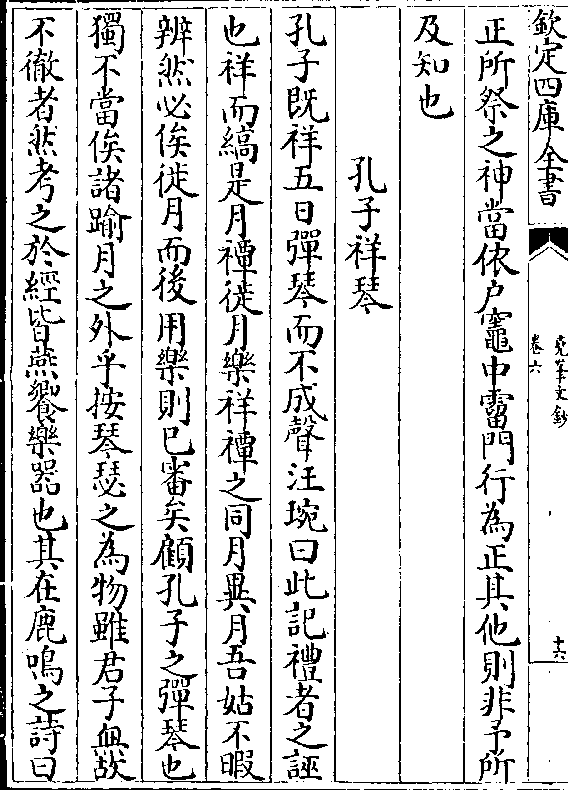 欽定四庫全書
堯峯文鈔
卷六
十六
正所祭之神當依户竈中霤門行為正其他則非予所
及知也
孔子祥琴
孔子既祥五日彈琴而不成聲汪琬曰此記禮者之誣
也祥而縞是月禫徙月樂祥禫之同月異月吾姑不暇
辨然必俟徙月而後用樂則已審矣顧孔子之彈琴也
獨不當俟諸踰月之外乎按琴瑟之為物雖君子無故
不徹者然考之於經皆燕饗樂器也其在鹿鳴之詩曰